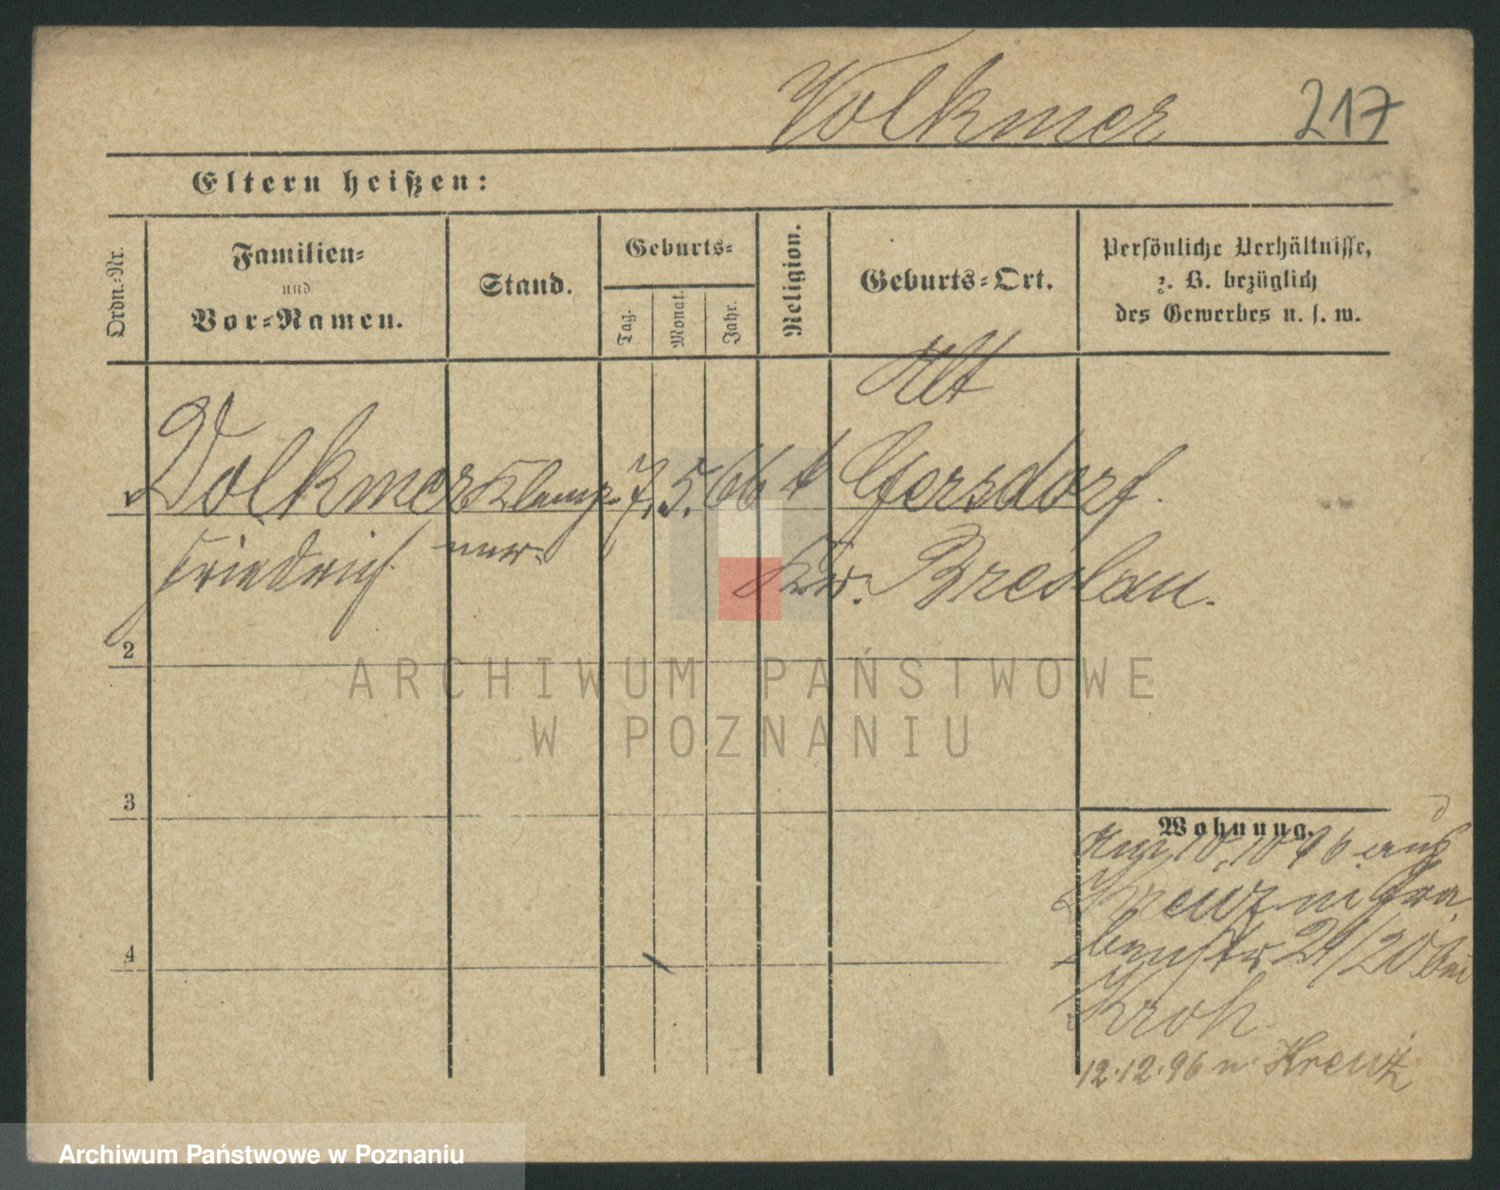 Volkmer 217
Eltern heißen:
Ordn.-Nr.
Familien-
und
Vor-Namen.
Stand.
Geburts-
Tag.
Monat.
Jahr.
Religion.
Geburts-Ort.
Persönliche Verhältnisse,
z. B. bezüglich
des Gewerbes u. s. w.
Alt
Volkmer Klemp- 7. 5. 66 Gersdorf.
Friedrich ner. Kr. Breslau.
2
ARCHIWUM PAŃSTWOWE
W POZNANIU
3
Wohnung.
10. 10 96 aus
Kreuz n Gra
benstr 24/20 bei
4
Kroh
12.12.96 n. Kreuz
Archiwum Państwowe w Poznaniu